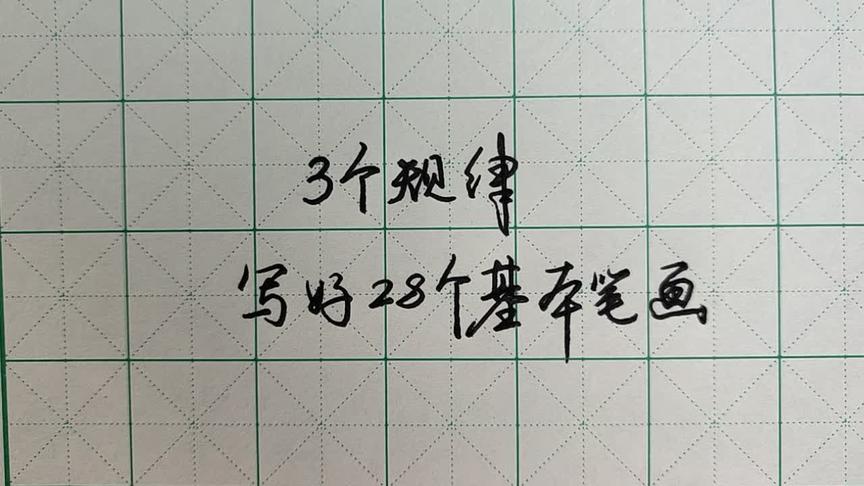 3个规律
写好28个基本笔画